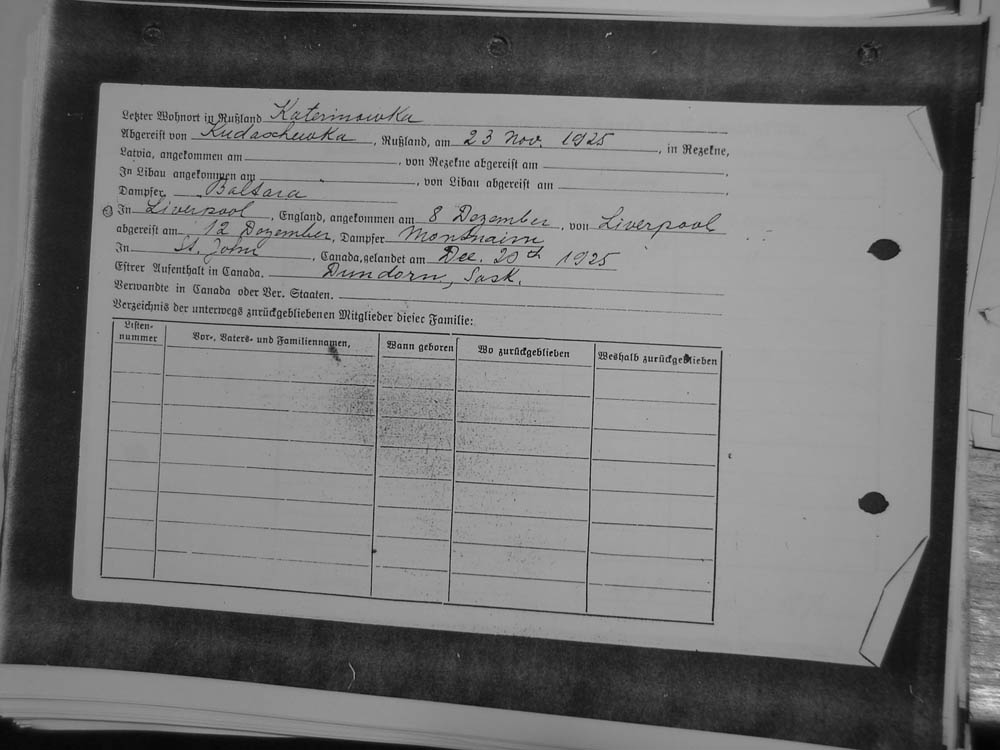 Letzter Wohnort in Rußland Katerinowka
Abgereist von Kudaschewka, Rußland, am 23 Nov. 1925, in Rezekne,
Latvia, angekommen am , von Rezekne abgereist am ,
In Libau angekommen am , von Libau abgereist am ,
Dampfer Baltara
In Liverpool, England, angekommen am 8 Dezember, von Liverpool
abgereist am 12 Dezember, Dampfer Montnairn
In St. John, Canada, gelandet am Dec. 20th 1925
Estrer Aufenthalt in Canada. Dundorn, Sask.
Verwandte in Canada oder Ver. Staaten.
Verzeichnis der unterwegs zurückgebliebenen Mitglieder dieser Familie:
Listen-nummer Vor-, Vaters- und Familiennamen, Wann geboren Wo zurückgeblieben Weshalb zurückgeblieben